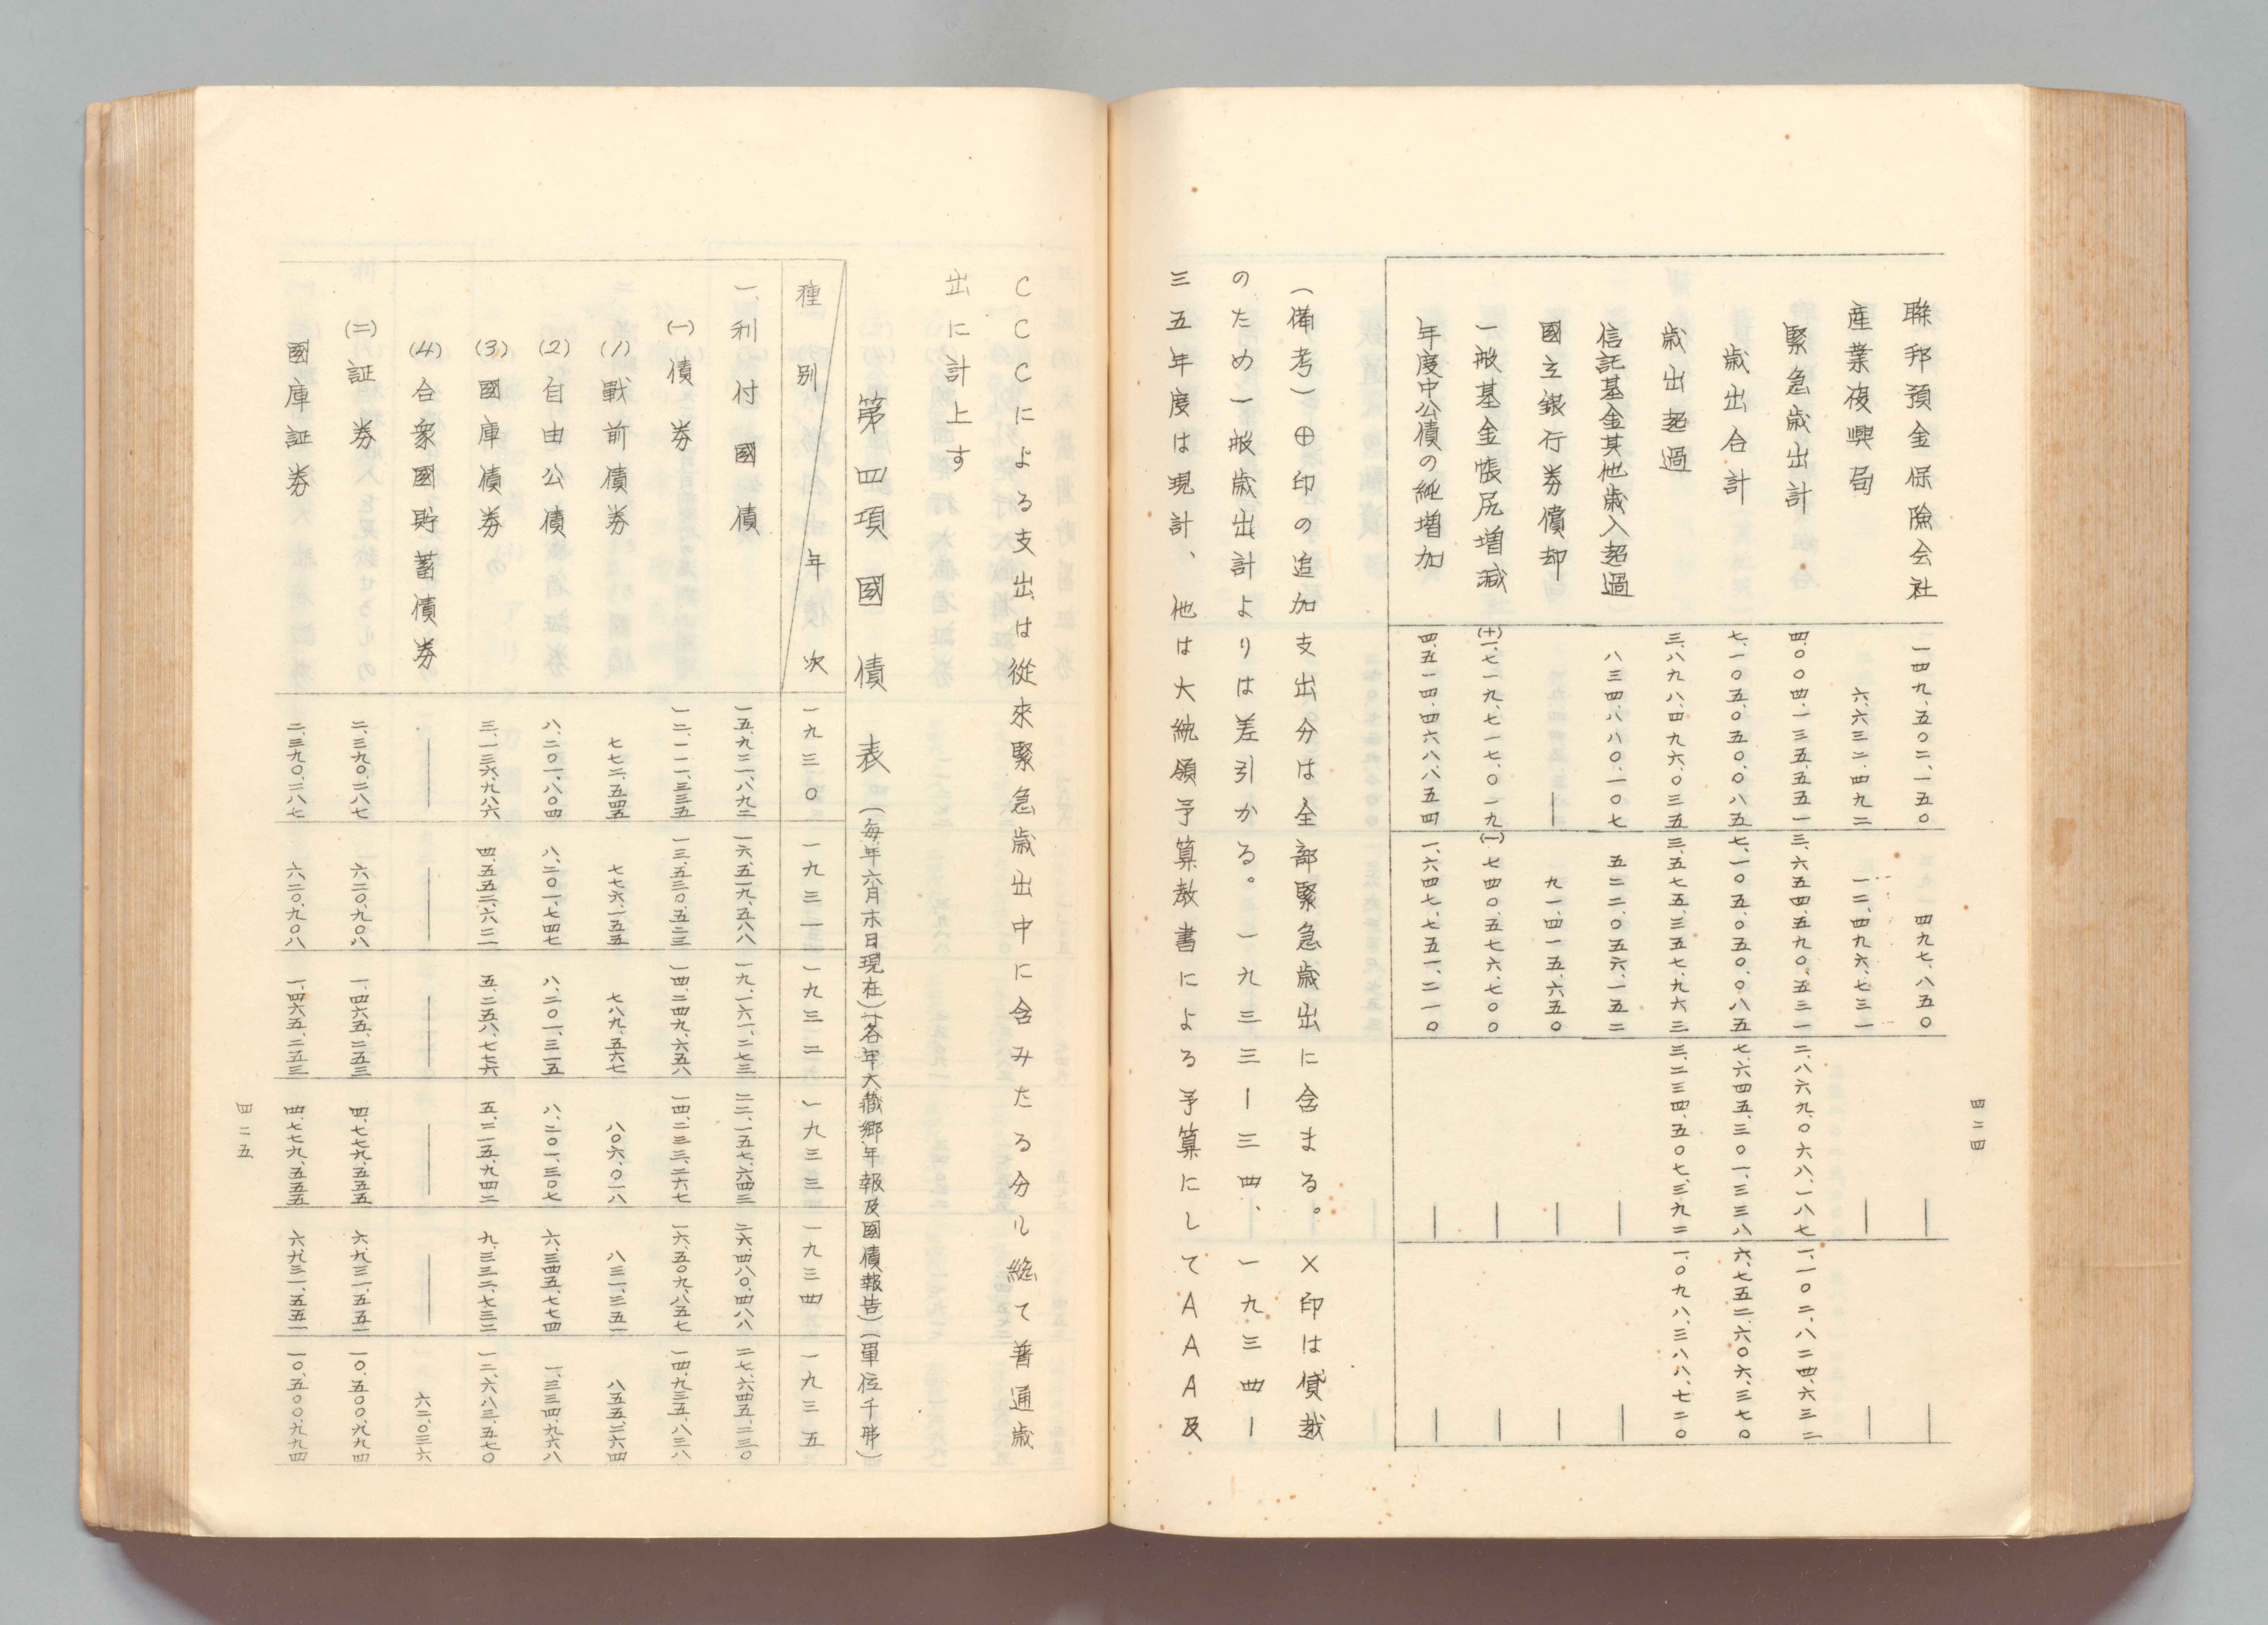 四二四
聯邦預金保険会社 一四九、五〇二、一五〇 四九七、八五〇 ― ―
産業復興局 六、六三二、四九二 一二、四九六、七三一 ― ―
緊急歳出計 四、〇〇四、一三五、五五一 三、六五四、五九〇、五三一 二、八六九、〇六八、一八七 一、一〇二、八二四、六三二
歳出合計 七、一〇五、〇五〇、〇八五 七、一〇五、〇五〇、〇八五 七、六四五、三〇一、三三八 六、七五二、六〇六、三七〇
歳出超過 三、八九八、四九六、〇三五 三、五七五、三五七、九六三 三、二三四、五〇七、三九二 一、〇九八、三八八、七二〇
信託基金其他歳入超過 八三四、八八〇、一〇七 五二二、〇五六、一五二 ― ―
國立銀行券償却 ― 九一、四一五、六五〇 ― ―
一般基金帳尻増減 (+)一、七一九、七一七、〇一九 (−)七四〇、五七六、七〇〇 ― ―
年度中公債の純増加 四、五一四、四六八、八五四 一、六四七、七五一、二一〇 ― ―
(備考)⊕印の追加支出分は全部緊急歳出に含まる。×印は貸越
のため一般歳出計よりは差引かる。一九三三ー三四、一九三四ー
三五年度は現計、他は大統領予算教書による予算にしてAAA及
CCCによる支出は從來緊急歳出中に含みたる分も総て普通歳
出に計上す
第四項 國債表 (毎年六月末日現在)(各年大蔵卿年報及國債報告)(單位千弗)
種別 年次 一九三〇 一九三一 一九三二 一九三三 一九三四 一九三五
一、利付國債 一五、九二一、八九二 一六、五一九、五八八 一九、一六一、二七三 二二、一五七、六四三 二六、四八〇、四八八 二七、六四五、二三〇
(一)債券 一二、一一一、三三五 一三、五三〇、五二三 一四、二四九、六五六 一四、二三三、二六七 一六、五〇九、八五七 一四、九三五、八三八
(1)戰前債券 七七二、五四五 七七六、一五五 七八九、五六七 八〇六、〇一八 八三一、三五一 八五五、二六四
(2)自由公債 八、二〇一、八〇四 八、二〇一、七四七 八、二〇一、三二五 八、二〇一、三〇七 六、三四五、七七四 一、三三四、九六八
(3)國庫債券 三、一三六、九八六 四、五五二、六二一 五、二五八、七七六 五、二一五、九四二 九、三三二、七三二 一二、六八三、五七〇
(4)合衆國貯蓄債券 ― ― ― ― ― 六二、〇三六
(二)証券 二、三九〇、二八七 六二〇、九〇八 一、四六五、二五三 四、七七九、五五五 六、九三一、五五一 一〇、五〇〇、九九四
國庫証券 二、三九〇、二八七 六二〇、九〇八 一、四六五、二五三 四、七七九、五五五 六、九三一、五五一 一〇、五〇〇、九九四
四二五